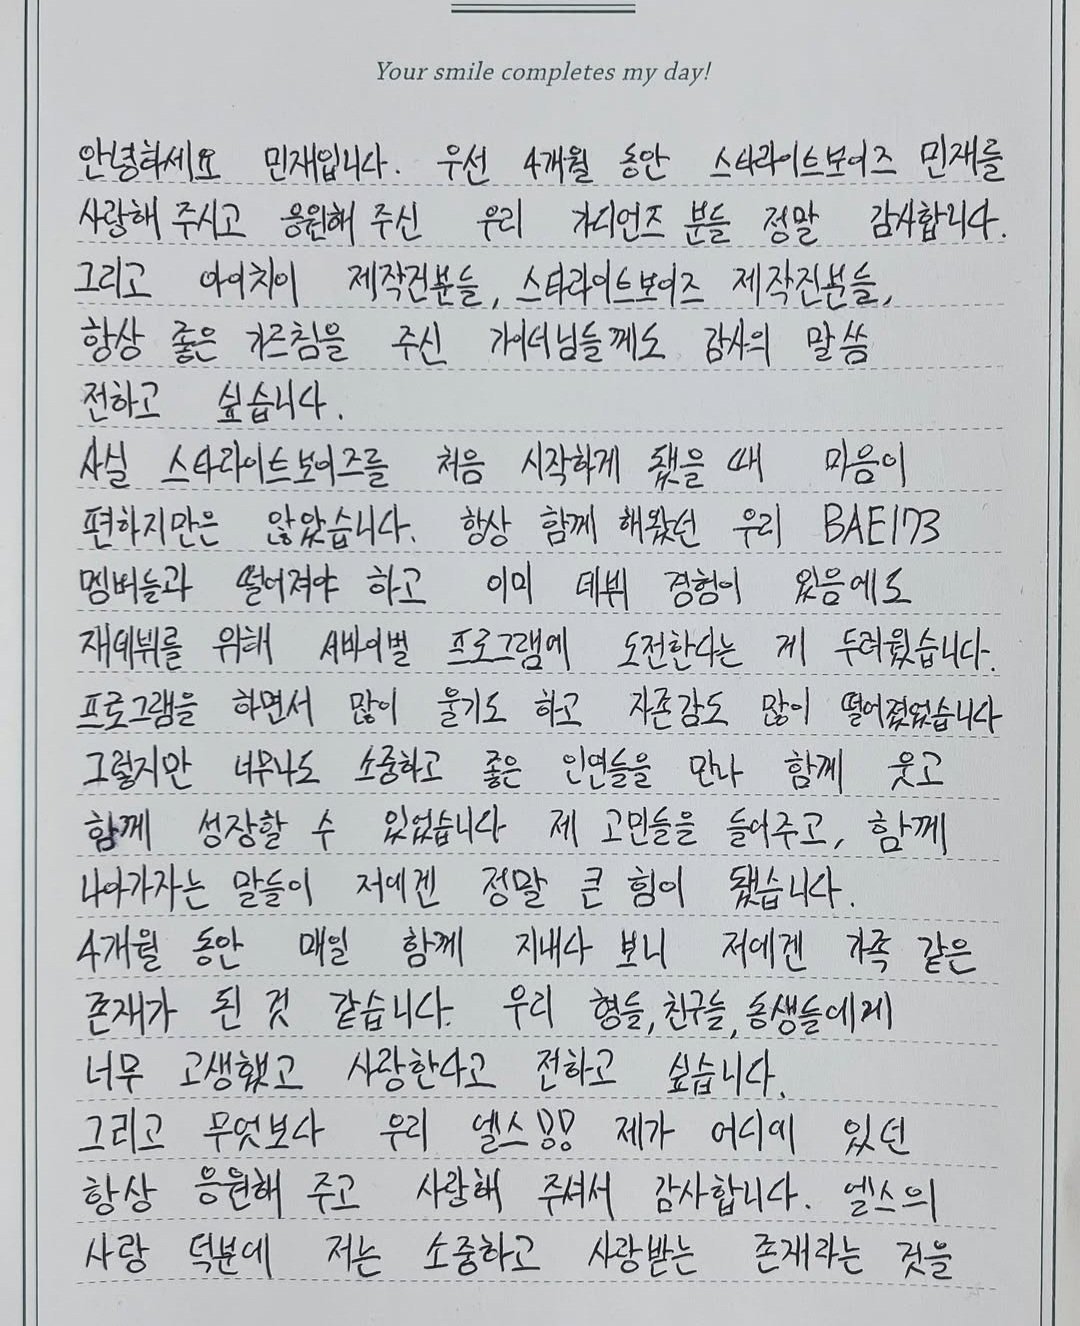 Your smile completes my day!
안녕하세요 민재입니다. 우선 4개월 동안 스타라이트보이즈 민재를
사랑해 주시고 응원해 주신 우리 가디언즈 분들 정말 감사합니다.
그리고 아이치이 제작진분들, 스타라이트보이즈 제작진분들,
항상 좋은 가르침을 주신 가이더님들께도 감사의 말씀
전하고 싶습니다.
사실 스타라이트보이즈를 처음 시작하게 됐을 때 마음이
편하지만은 않았습니다. 항상 함께 해왔던 우리 BAE173
멤버들과 떨어져야 하고 이미 데뷔 경험이 있음에도
재데뷔를 위해 서바이벌 프로그램에 도전한다는 게 두려웠습니다.
프로그램을 하면서 많이 울기도 하고 자존감도 많이 떨어졌었습니다
그렇지만 너무나도 소중하고 좋은 인연들을 만나 함께 웃고
함께 성장할 수 있었습니다 제 고민들을 들어주고, 함께
나아가자는 말들이 저에겐 정말 큰 힘이 됐습니다.
4개월 동안 매일 함께 지내다 보니 저에겐 가족 같은
존재가 된 것 같습니다. 우리 형들, 친구들, 동생들에게
너무 고생했고 사랑한다고 전하고 싶습니다.
그리고 무엇보다 우리 엘스!! 제가 어디에 있던
항상 응원해 주고 사랑해 주셔서 감사합니다. 엘스의
사랑 덕분에 저는 소중하고 사랑받는 존재라는 것을